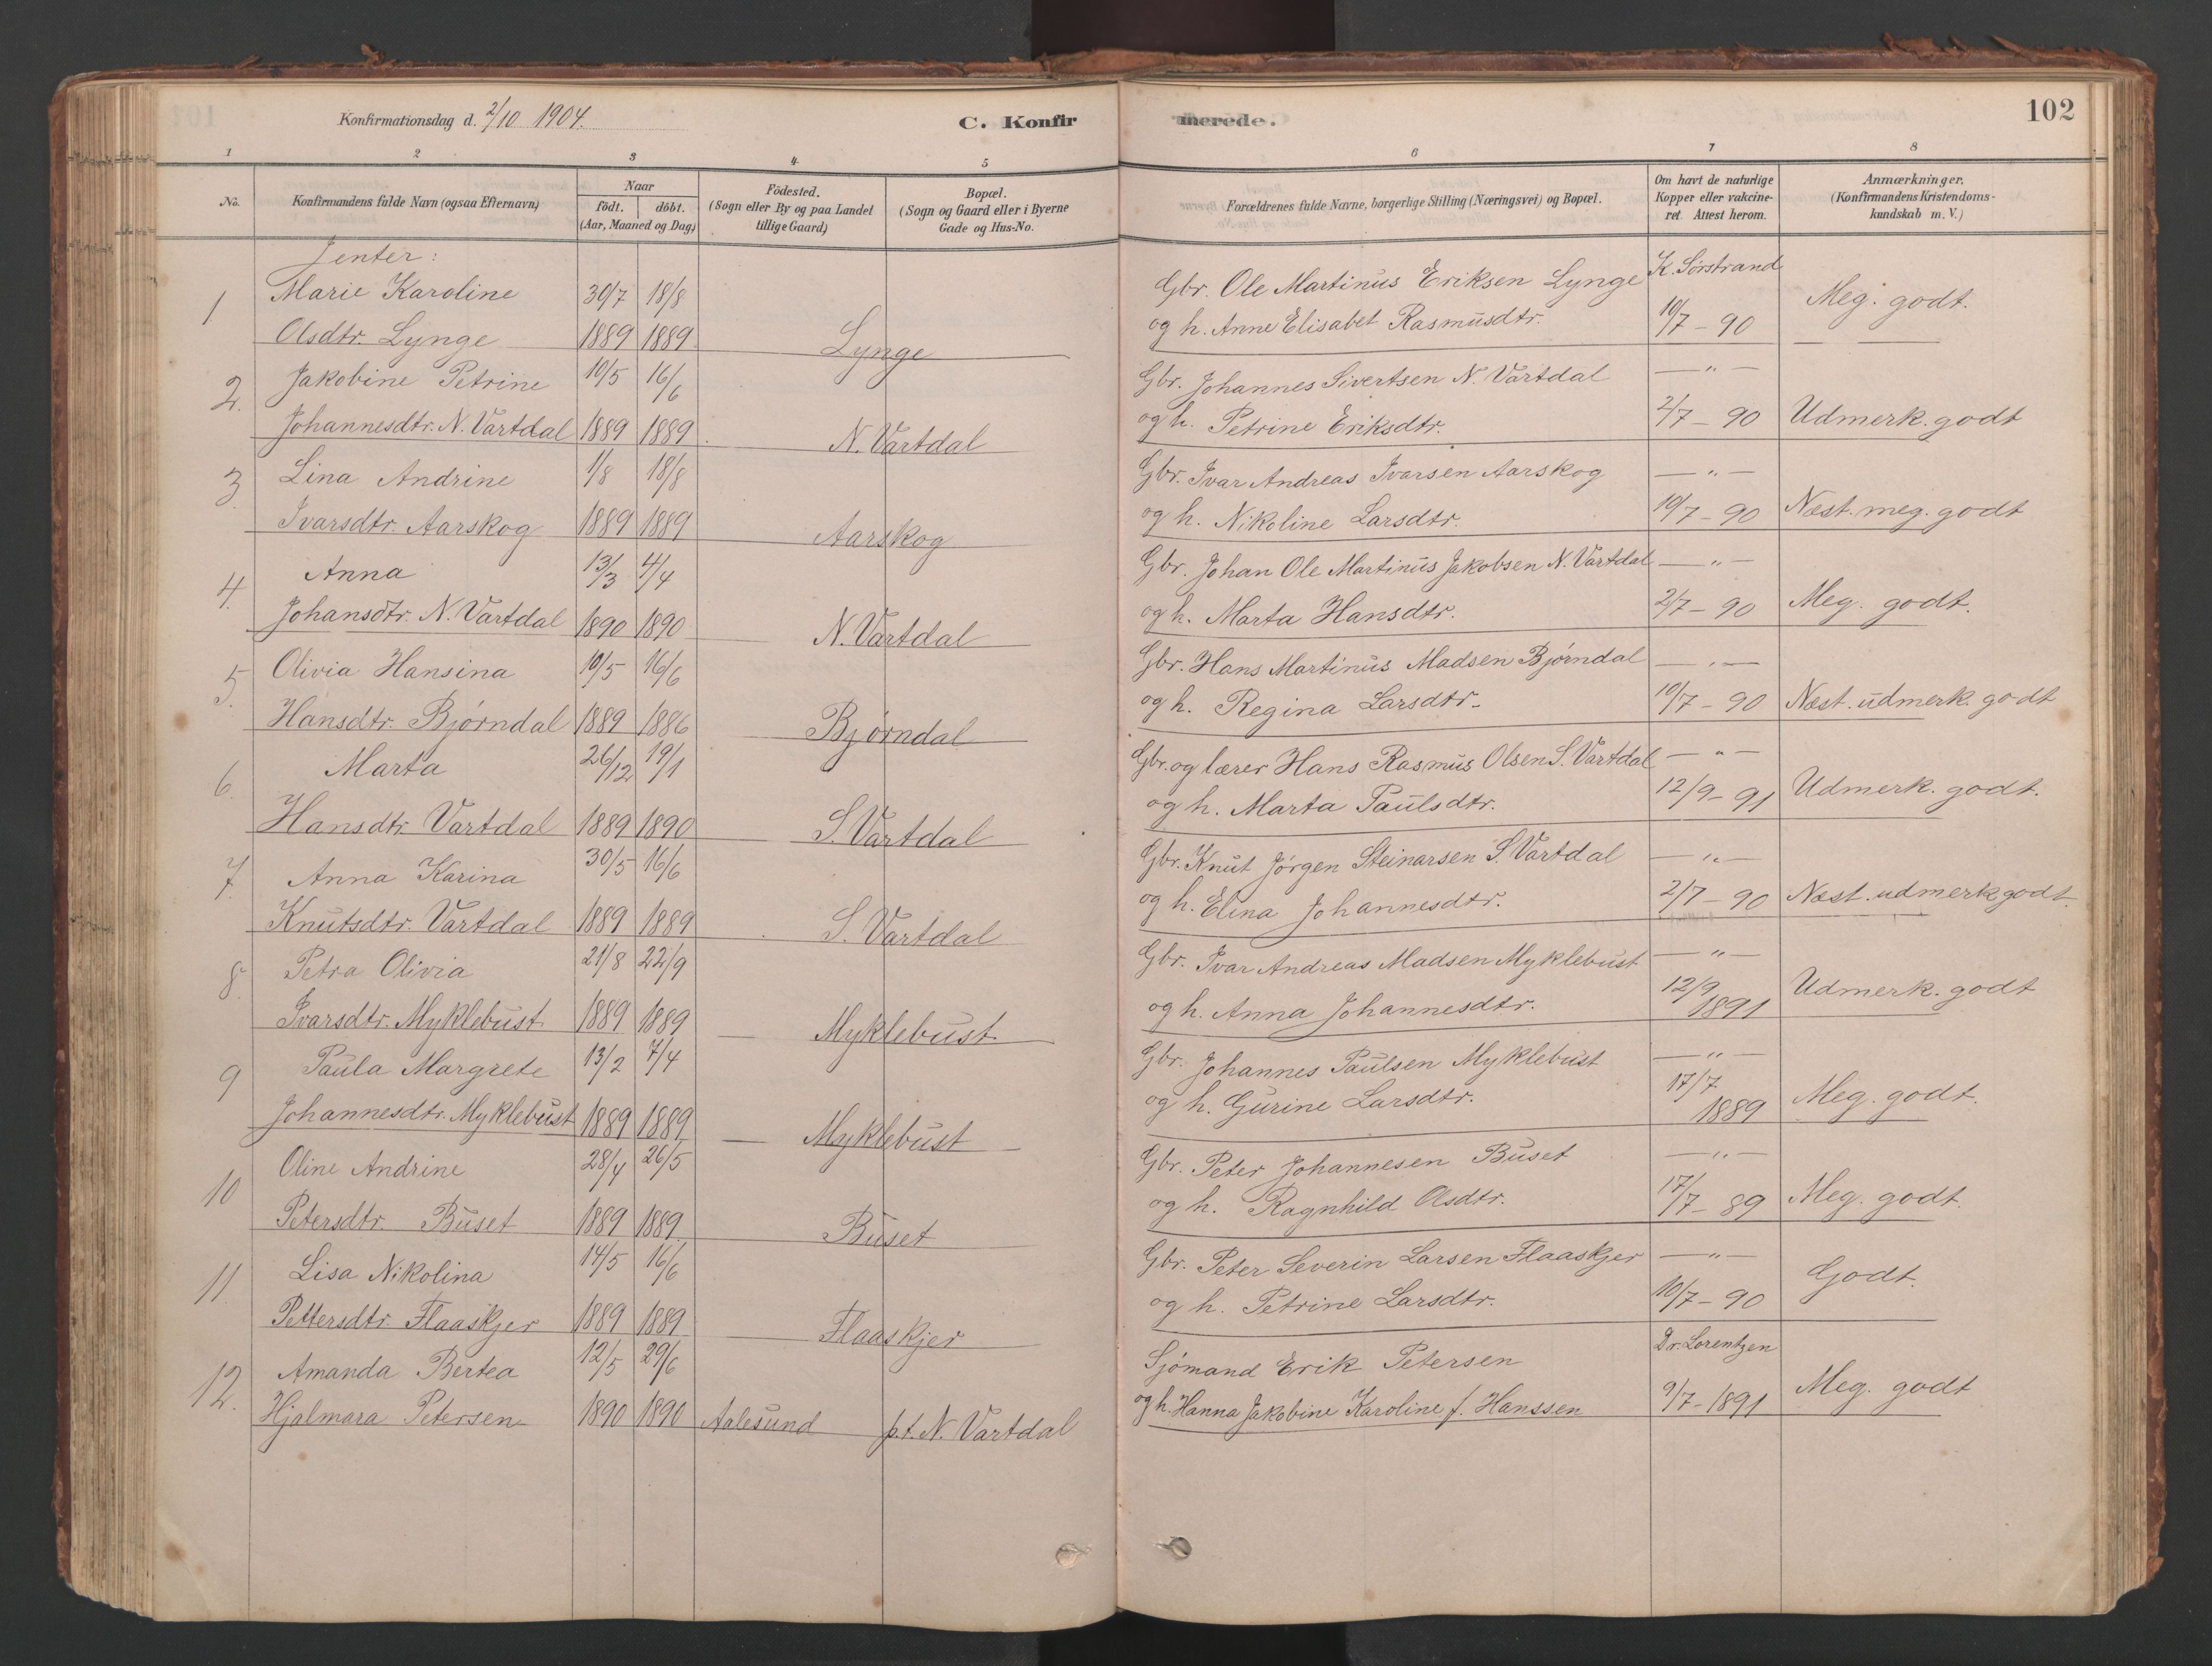 Konfirmationsdag d. 2/10 1904.
C. Konfirmerede.
102
1 2 3 4 5 6 7 8
No.
Konfirmandens fulde Navn (ogsaa Efternavn)
Naar
födt. döbt.
(Aar, Maaned og Dag)
Födested.
(Sogn eller By og paa Landet
tillige Gaard)
Bopæl.
(Sogn og Gaard eller i Byerne
Gade og Hus-No.
Forældrenes fulde Navne, borgerlige Stilling (Næringsvei) og Bopæl.
Om havt de naturlige
Kopper eller vakcine-
ret. Attest herom.
Anmærkninger.
(Konfirmandens Kristendoms-
kundskab m. V.)
Jenter:
1 Marie Karoline 30/7 18/8 Gbr. Ole Martinus Eriksen Lynge K. Sørstrand Meg. godt.
Olsdtr. Lynge 1889 1889 Lynge og h. Anne Elisabet Rasmusdtr. 10/7 - 90
2. Jakobine Petrine 10/5 16/6 Gbr. Johannes Sivertsen N. Vartdal — „ —
Johannesdtr. N. Vartdal 1889 1889 N. Vartdal og h. Petrine Eriksdtr. 2/7 - 90 Udmerk. godt
3. Lina Andrine 1/8 18/8 Gbr. Ivar Andreas Ivarsen Aarskog — „ —
Ivarsdtr. Aarskog 1889 1889 Aarskog og h. Nikoline Larsdtr. 10/7 - 90 Næst. meg. godt
4. Anna 13/3 4/4 Gbr. Johan Ole Martinus Jakobsen N. Vartdal — „ —
Johansdtr. N. Vartdal 1890 1890 N. Vartdal og h. Marta Hansdtr. 2/7 - 90 Meg. godt.
5. Olivia Hansina 10/5 16/6 Gbr. Hans Martinus Madsen Bjørndal — „ —
Hansdtr. Bjørndal 1889 1886 Bjørndal og h. Regina Larsdtr. 10/7 - 90 Næst. udmerk. godt
6. Marta 26/12 19/1 Gbr. og lærer Hans Rasmus Olsen S. Vartdal — „ —
Hansdtr. Vartdal 1889 1890 S. Vartdal og h. Marta Paulsdtr. 12/9 - 91 Udmerk. godt.
7. Anna Karina 30/5 16/6 Gbr. Knut Jørgen Steinarsen S. Vartdal — „ —
Knutsdtr. Vartdal 1889 1889 S. Vartdal og h. Elina Johannesdtr. 2/7 - 90 Næst. udmerk godt.
8. Petra Olivia 21/8 22/9 Gbr. Ivar Andreas Madsen Myklebust — „ —
Ivarsdtr. Myklebust 1889 1889 Myklebust og h. Anna Johannesdtr. 12/9 1891 Udmerk. godt
9 Paula Margrete 13/2 7/4 Gbr. Johannes Paulsen Myklebust — „ —
Johannesdtr. Myklebust 1889 1889 Myklebust og h. Gurine Larsdtr. 17/7 1889 Meg. godt.
10 Oline Andrine 28/4 26/5 Gbr. Peter Johannesen Buset — „ —
Petersdtr. Buset 1889 1889 Buset og h. Ragnhild Olsdtr. 17/7 - 89 Meg. godt.
11. Lisa Nikolina 14/5 16/6 Gbr. Peter Severin Larsen Flaaskjer — „ —
Pettersdtr. Flaaskjer 1889 1889 Flaaskjer og h. Petrine Larsdtr. 10/7 - 90 Godt.
12. Amanda Bertea 12/5 29/6 Sjömand Erik Petersen Dr. Lorentzen
Hjalmara Petersen 1890 1890 Aalesund p.t. N. Vartdal og h. Hanna Jakobine Karoline f. Hanssen 9/7 - 1891 Meg. godt